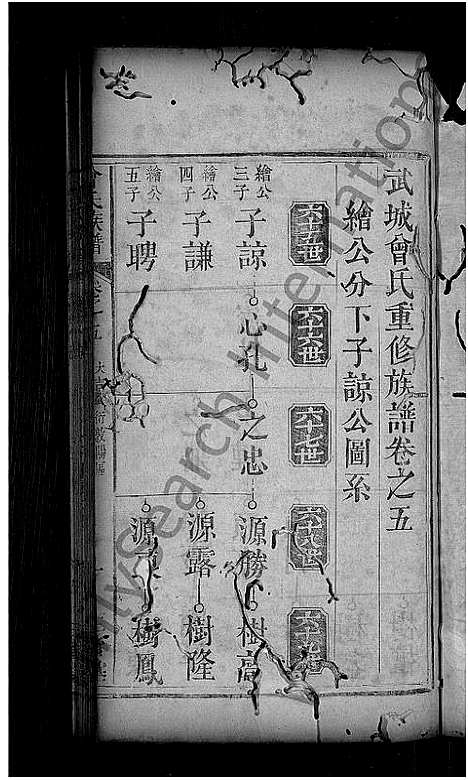 武城曾氏重修族譜卷之五
繪公分下子諒公圖系
六十五世
六十六世
六十七世
六十八世
六十九世
繪公三子 子諒 心孔 之忠 源勝 樹高
繪公四子 子謙 源露 樹隆
繪公五子 子聘 源 樹鳳
氏族譜 卷之五
FamilySearch International